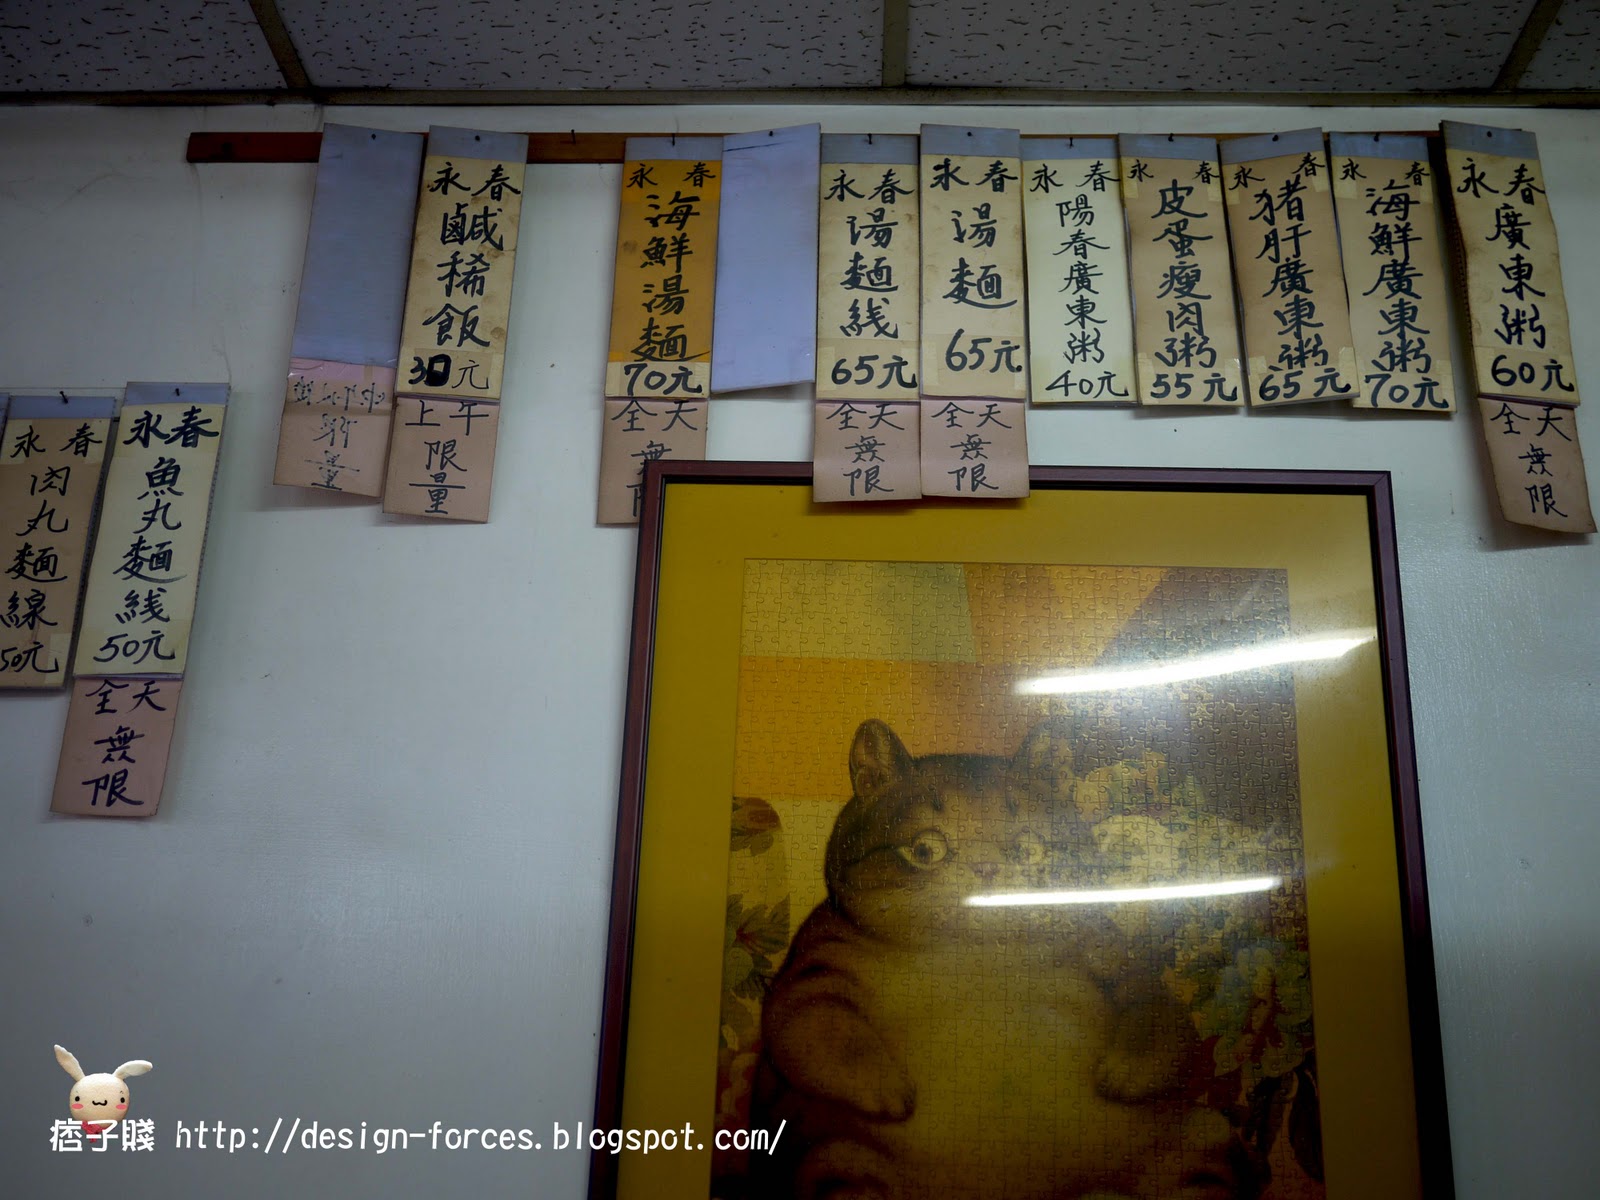 永春
鹹稀飯
30元
上午
限量
永春
海鮮湯麵
70元
全天
無限
永春
湯麵线
65元
全天
無限
永春
湯麵
65元
全天
無限
永春
陽春廣東粥
40元
永春
皮蛋瘦肉粥
55元
永春
猪肝廣東粥
65元
永春
海鮮廣東粥
70元
永春
廣東粥
60元
全天
無限
永春
肉丸麵線
50元
永春
魚丸麵线
50元
全天
無限
痞子賤 http://design-forces.blogspot.com/